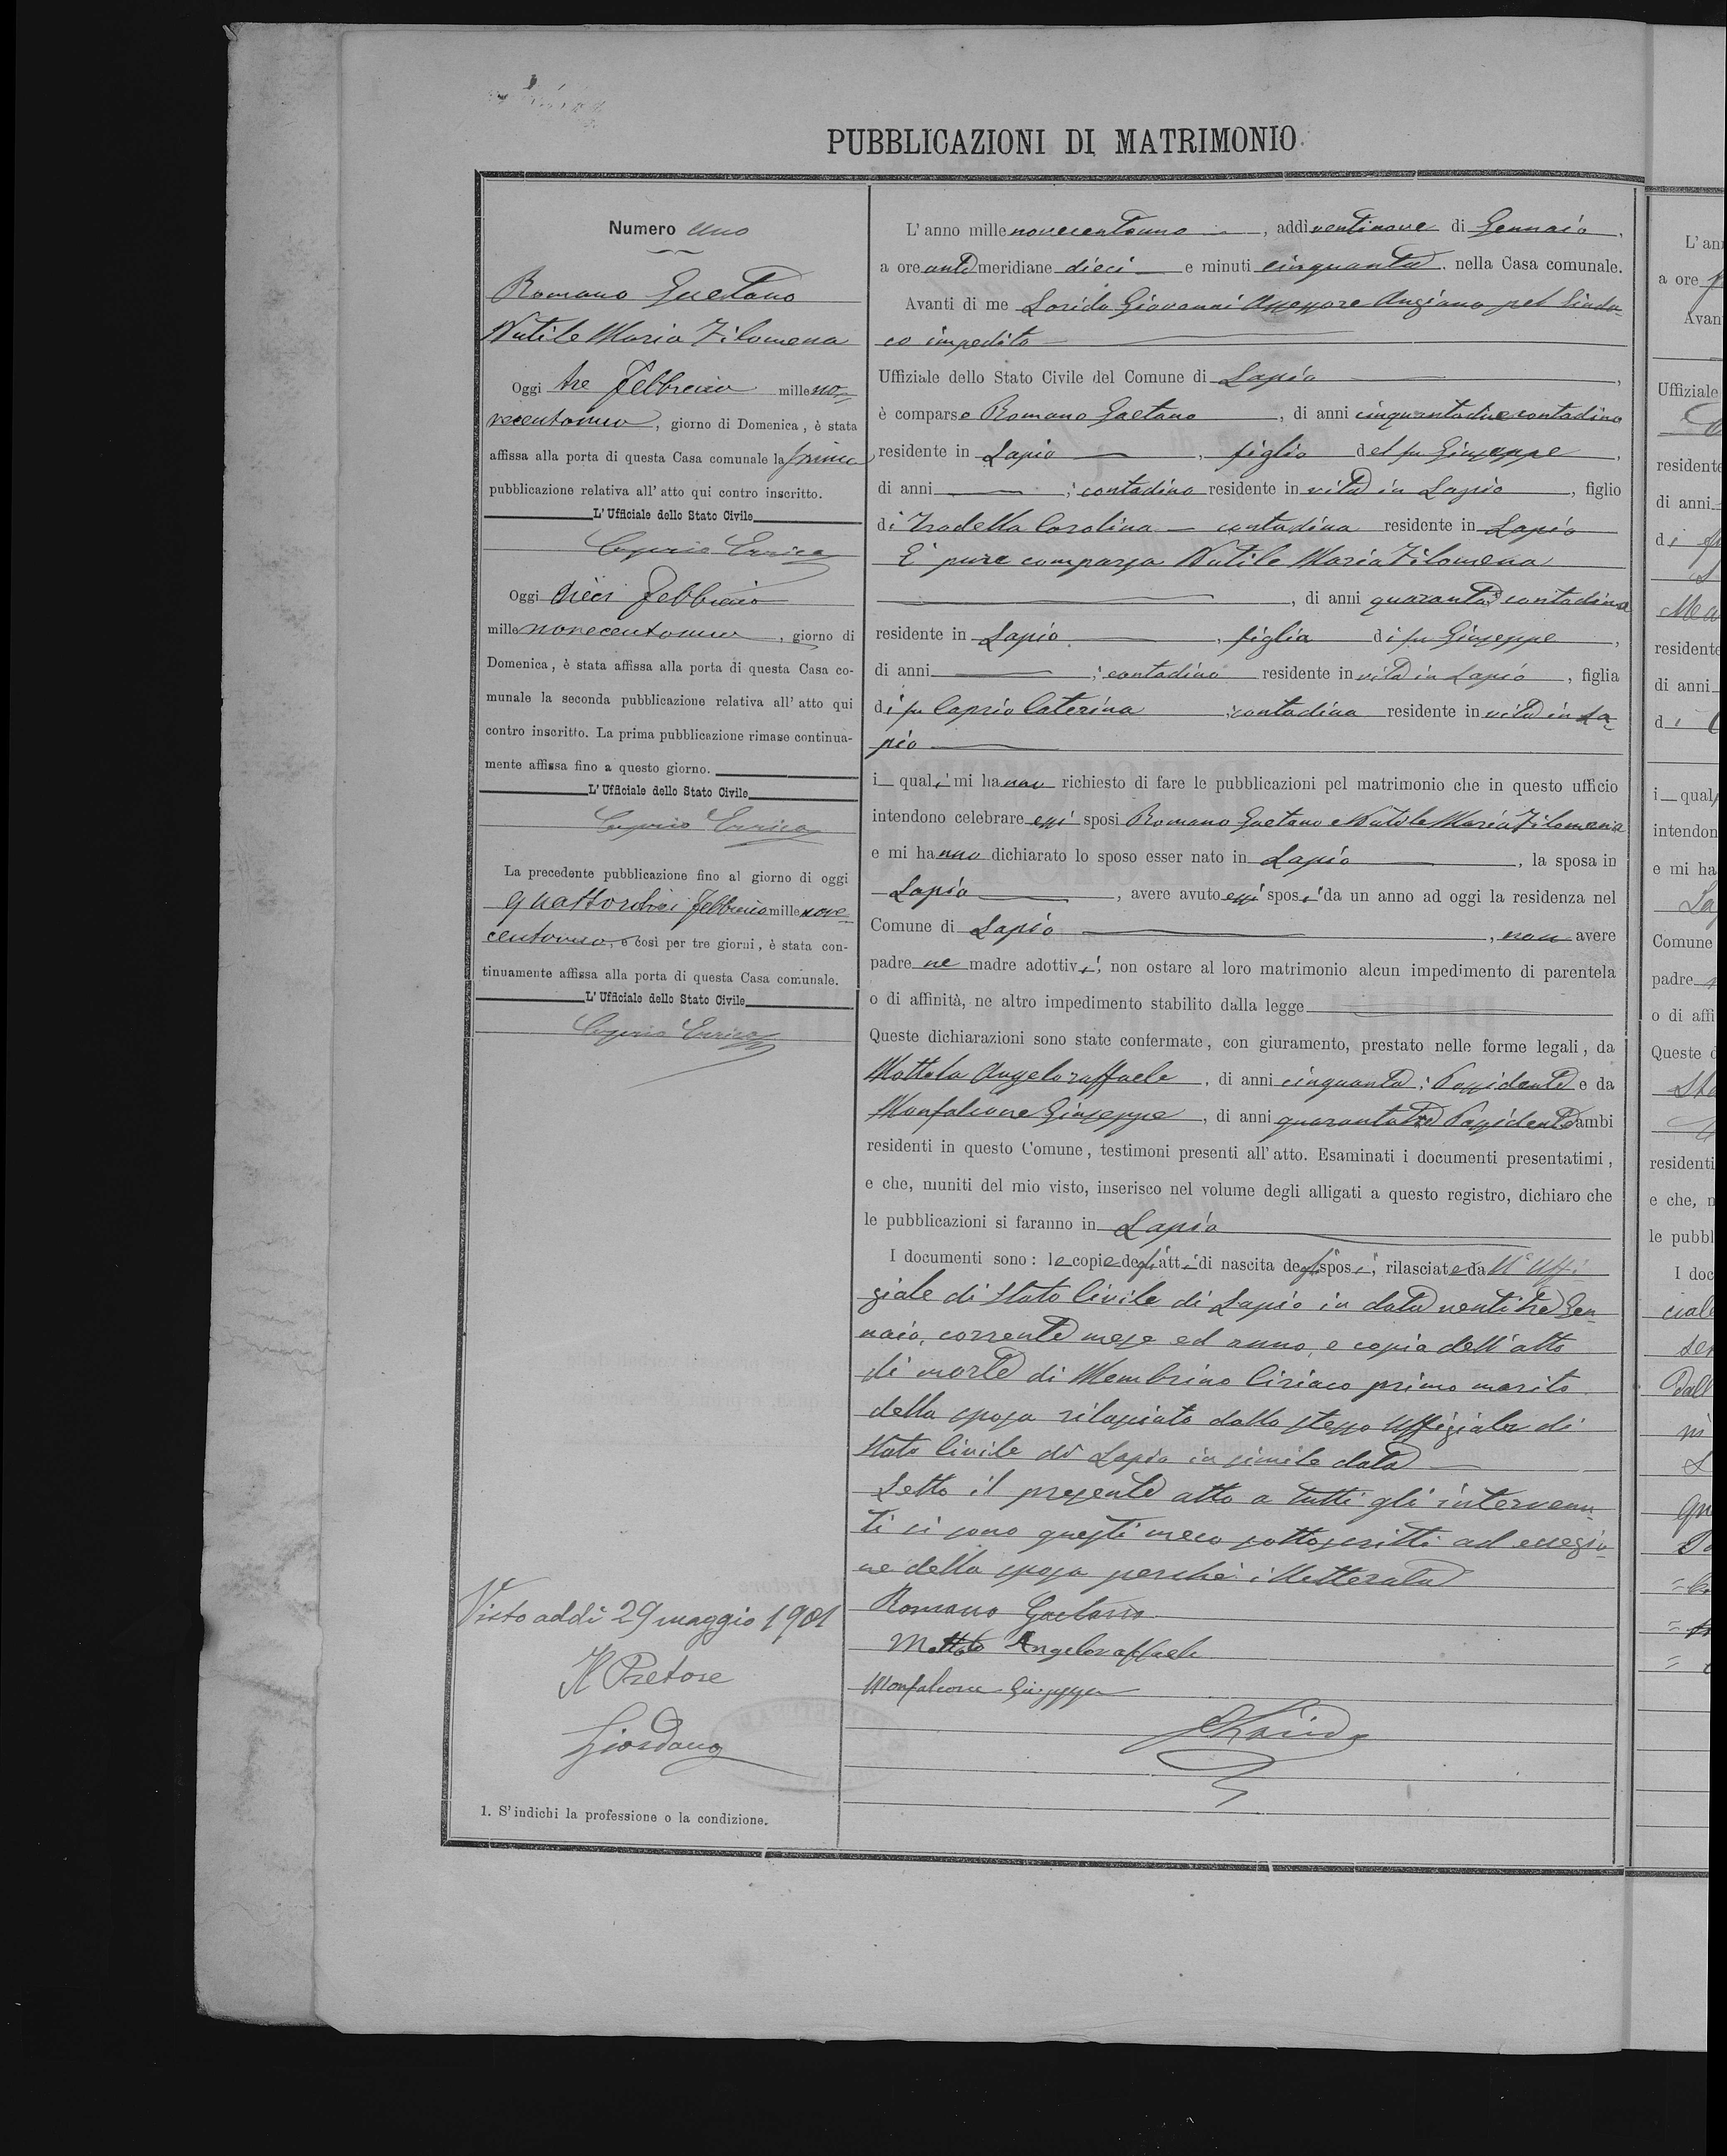 PUBBLICAZIONI DI MATRIMONIO
Numero Uno
Romano Gaetano
Nutile Maria Filomena
Oggi tre Febbraio mille no-
vecentouno, giorno di Domenica, è stata
affissa alla porta di questa Casa comunale la prima
pubblicazione relativa all' atto qui contro inscritto.
L' Ufficiale dello Stato Civile
Enrico
Oggi dieci Febbraio
mille novecentouno, giorno di
Domenica, è stata affissa alla porta di questa Casa co-
munale la seconda pubblicazione relativa all' atto qui
contro inscritto. La prima pubblicazione rimase continua-
mente affissa fino a questo giorno.
L' Ufficiale dello Stato Civile
Enrico
La precedente pubblicazione fino al giorno di oggi
quattordici Febbraio mille nove-
centouno, e così per tre giorni, è stata con-
tinuamente affissa alla porta di questa Casa comunale.
L' Ufficiale dello Stato Civile
Enrico
Visto addì 29 maggio 1901
Il Pretore
Giordano
1. S' indichi la professione o la condizione.
L' anno mille novecentouno, addì ventinove di Gennaio,
a ore antimeridiane dieci e minuti cinquanta, nella Casa comunale.
Avanti di me Lorido Giovanni Assessore Anziano pel Sinda-
co impedito
Uffiziale dello Stato Civile del Comune di Lapio,
è comparso Romano Gaetano, di anni cinquantadue contadino
residente in Lapio, figlio del fu Giuseppe,
di anni ; contadino residente in vita in Lapio, figlio
di Carolina contadina residente in Lapio
E pure comparsa Nutile Maria Filomena
, di anni quaranta contadina
residente in Lapio, figlia di fu Giuseppe,
di anni ; contadino residente in vita in Lapio, figlia
di fu Caprio Caterina contadina residente in vita in La-
pio
i quali mi hanno richiesto di fare le pubblicazioni pel matrimonio che in questo ufficio
intendono celebrare essi sposi Romano Gaetano e Nutile Maria Filomena
e mi hanno dichiarato lo sposo esser nato in Lapio, la sposa in
Lapio, avere avuto essi sposi da un anno ad oggi la residenza nel
Comune di Lapio, non avere
padre ne madre adottivi, non ostare al loro matrimonio alcun impedimento di parentela
o di affinità, ne altro impedimento stabilito dalla legge
Queste dichiarazioni sono state confermate, con giuramento, prestato nelle forme legali, da
Mottola Angeloraffaele, di anni cinquanta; Possidente e da
Monfalcone Giuseppe, di anni quarantatre Possidente ambi
residenti in questo Comune, testimoni presenti all' atto. Esaminati i documenti presentatimi,
e che, muniti del mio visto, inserisco nel volume degli alligati a questo registro, dichiaro che
le pubblicazioni si faranno in Lapio
I documenti sono: le copie degli atti di nascita degli sposi, rilasciate dall' Uffi-
ziale di Stato Civile di Lapio in data ventitre Gen-
naio, corrente mese ed anno, e copia dell' atto
di morte di Membrino Ciriaco primo marito
della sposa rilasciato dallo stesso Uffiziale di
Stato Civile di Lapio in simile data
Letto il presente atto a tutti gli intervenu-
ti si sono questi meco sottoscritti ad eccezio-
ne della sposa perchè illetterata
Romano Gaetano
Mottola Angeloraffaele
Monfalcone Giuseppe
L' an
a ore
Avan
Uffiziale
residente
di anni
di
residente
di anni
di
i qual
intendon
e mi ha
La
Comune
padre
o di affi
Queste
residenti
e che,
le pubbl
I doc